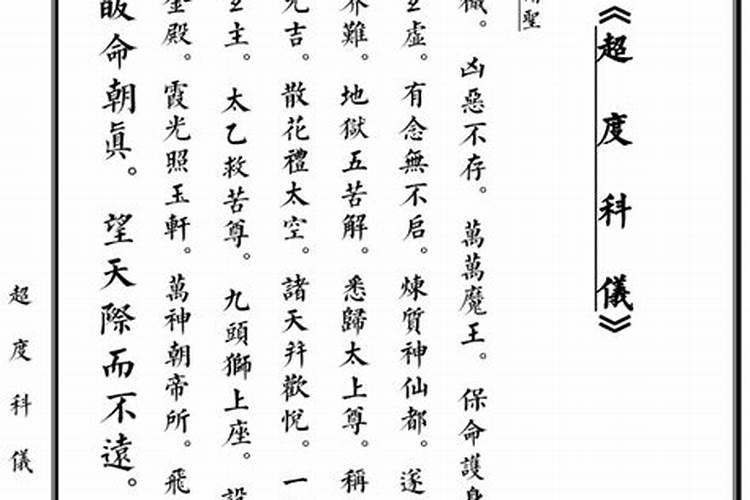 《超度科儀》
聖
凶惡不存。萬萬魔王。保命護身
虛。有念無不啟。煉質神仙都。遂
難。地獄五苦解。悉歸太上尊。稱
吉。散花禮太空。諸天并歡悅。一
主。太乙救苦尊。九頭獅上座。設
金殿。霞光照玉軒。萬神朝帝所。飛
皈命朝眞。望天際而不遠。
超度科儀